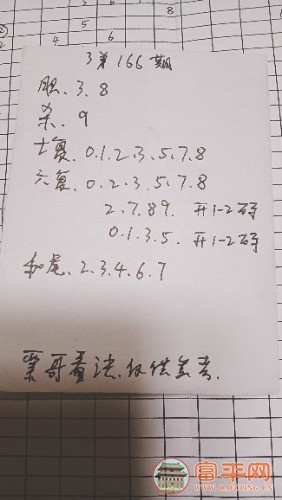 3弟166期
胆、3、8
杀、9
七复、0.1.2.3.5.7.8
六复、0.2.3.5.7.8
2.7.89. 开1-2码
0.1.3.5. 开1-2码
和尾、2.3.4.6.7
哥看法.仅供参考.
富平网
5
8
4
6